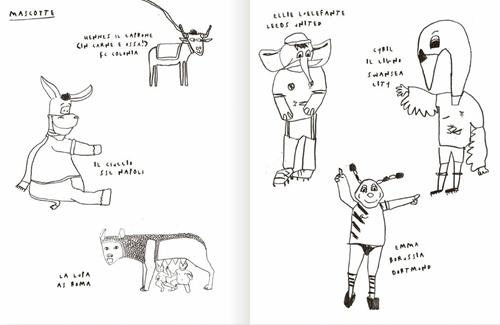 MASCOTTE
HENNES IL CAPRONE
(IN CARNE E OSSA!)
FC COLONIA
IL CIUCCIO
SSC NAPOLI
LA LUPA
AS ROMA
ELLIE L'ELEFANTE
LEEDS UNITED
CYRIL
IL CIGNO
SWANSEA
CITY
EMMA
BORUSSIA
DORTMUND